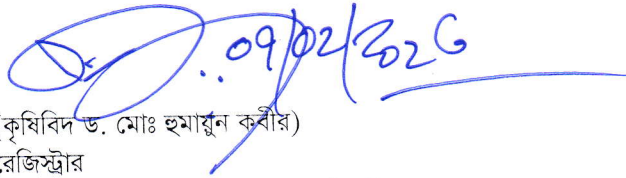 ০৭/০২/২০২৬
(কৃষিবিদ ড. মোঃ হুমায়ুন কবীর)
রেজিস্ট্রার